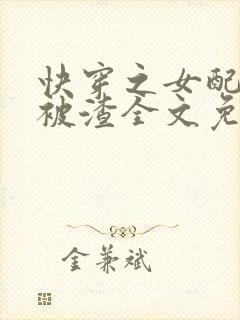 快穿之女配
被渣全文免
金兼斌